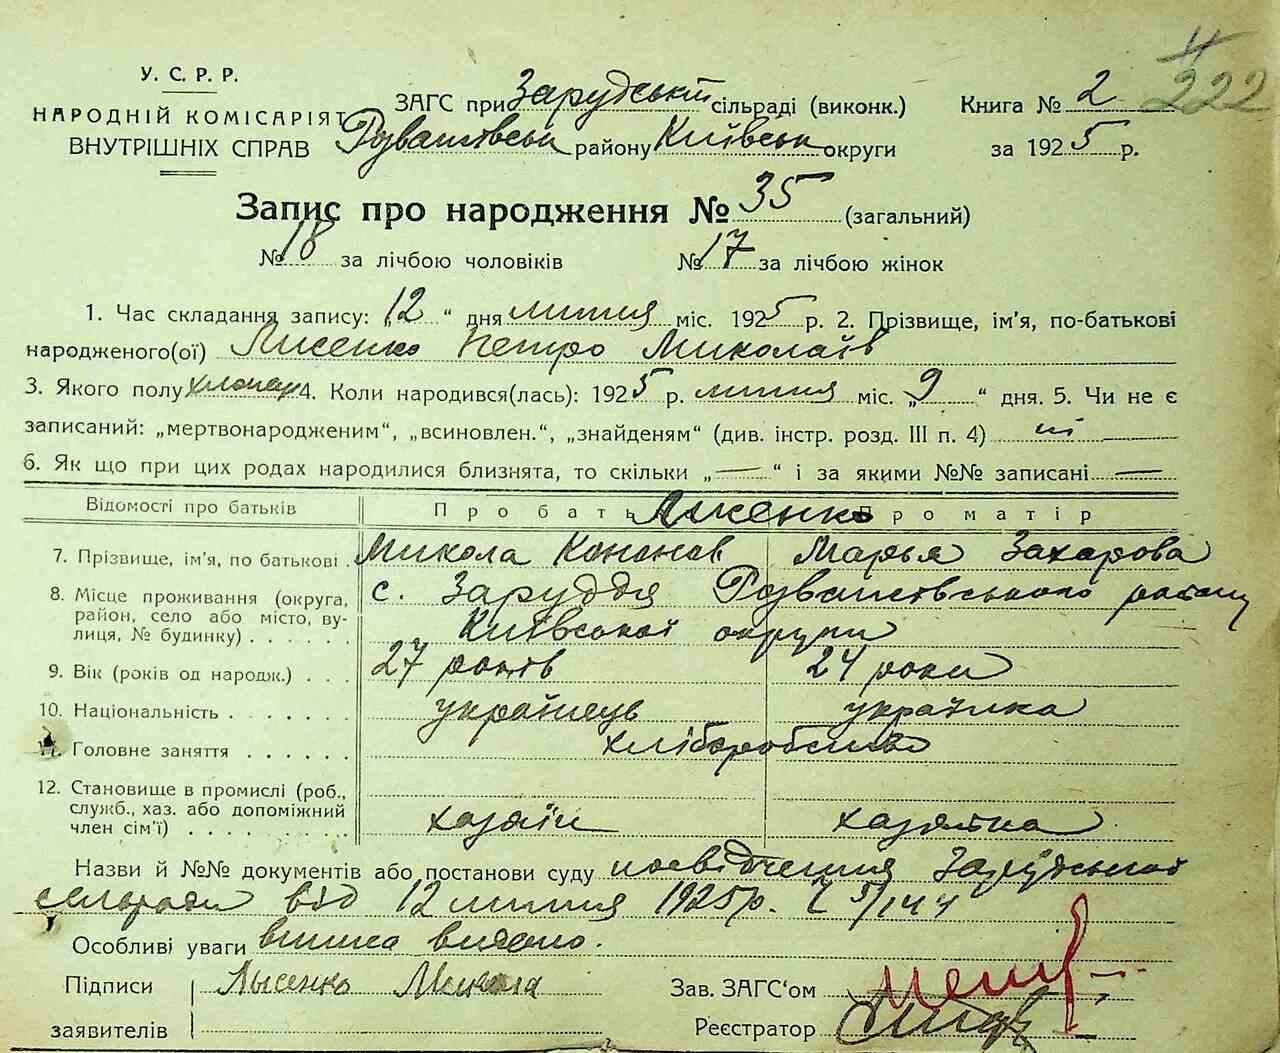 У. С. Р. Р.
НАРОДНІЙ КОМІСАРІЯТ
ВНУТРІШНІХ СПРАВ
222
ЗАГС при Зарудській сільраді (виконк.) Книга № 2
Розваговськ району Київськ округи за 1925 р.
Запис про народження № 35 (загальний)
№ 18 за лічбою чоловіків № 17 за лічбою жінок
1. Час складання запису: „12“ дня липня міс. 1925 р. 2. Прізвище, ім'я, по-батькові
народженого(ої) Лисенко Петро Миколаїв
3. Якого полу хлопець 4. Коли народився(лась): 1925 р. липня міс. „9“ дня. 5. Чи не є
записаний: „мертвонародженим“, „всиновлен.“, „знайденям“ (див. інстр. розд. III п. 4) ні
6. Як що при цих родах народилися близнята, то скільки „—“ і за якими №№ записані —
Відомості про батьків Про батька Лисенко Про матір
7. Прізвище, ім'я, по батькові Микола Кононов Марья Захарова
8. Місце проживання (округа, район, село або місто, вулиця, № будинку) с. Заруддя Розваговського району
Київської округи
9. Вік (років од народж.) 27 років 24 роки
10. Національність українець українка
11. Головне заняття хліборобство
12. Становище в промислі (роб., служб., хаз. або допоміжний член сім'ї) хазяїн хазяйка
Назви й №№ документів або постанови суду посвідчення Зарудської
сельради від 12 липня 1925 р.
Особливі уваги випис видано.
Підписи заявителів Лысенко Микола
Зав. ЗАГС'ом
Реєстратор